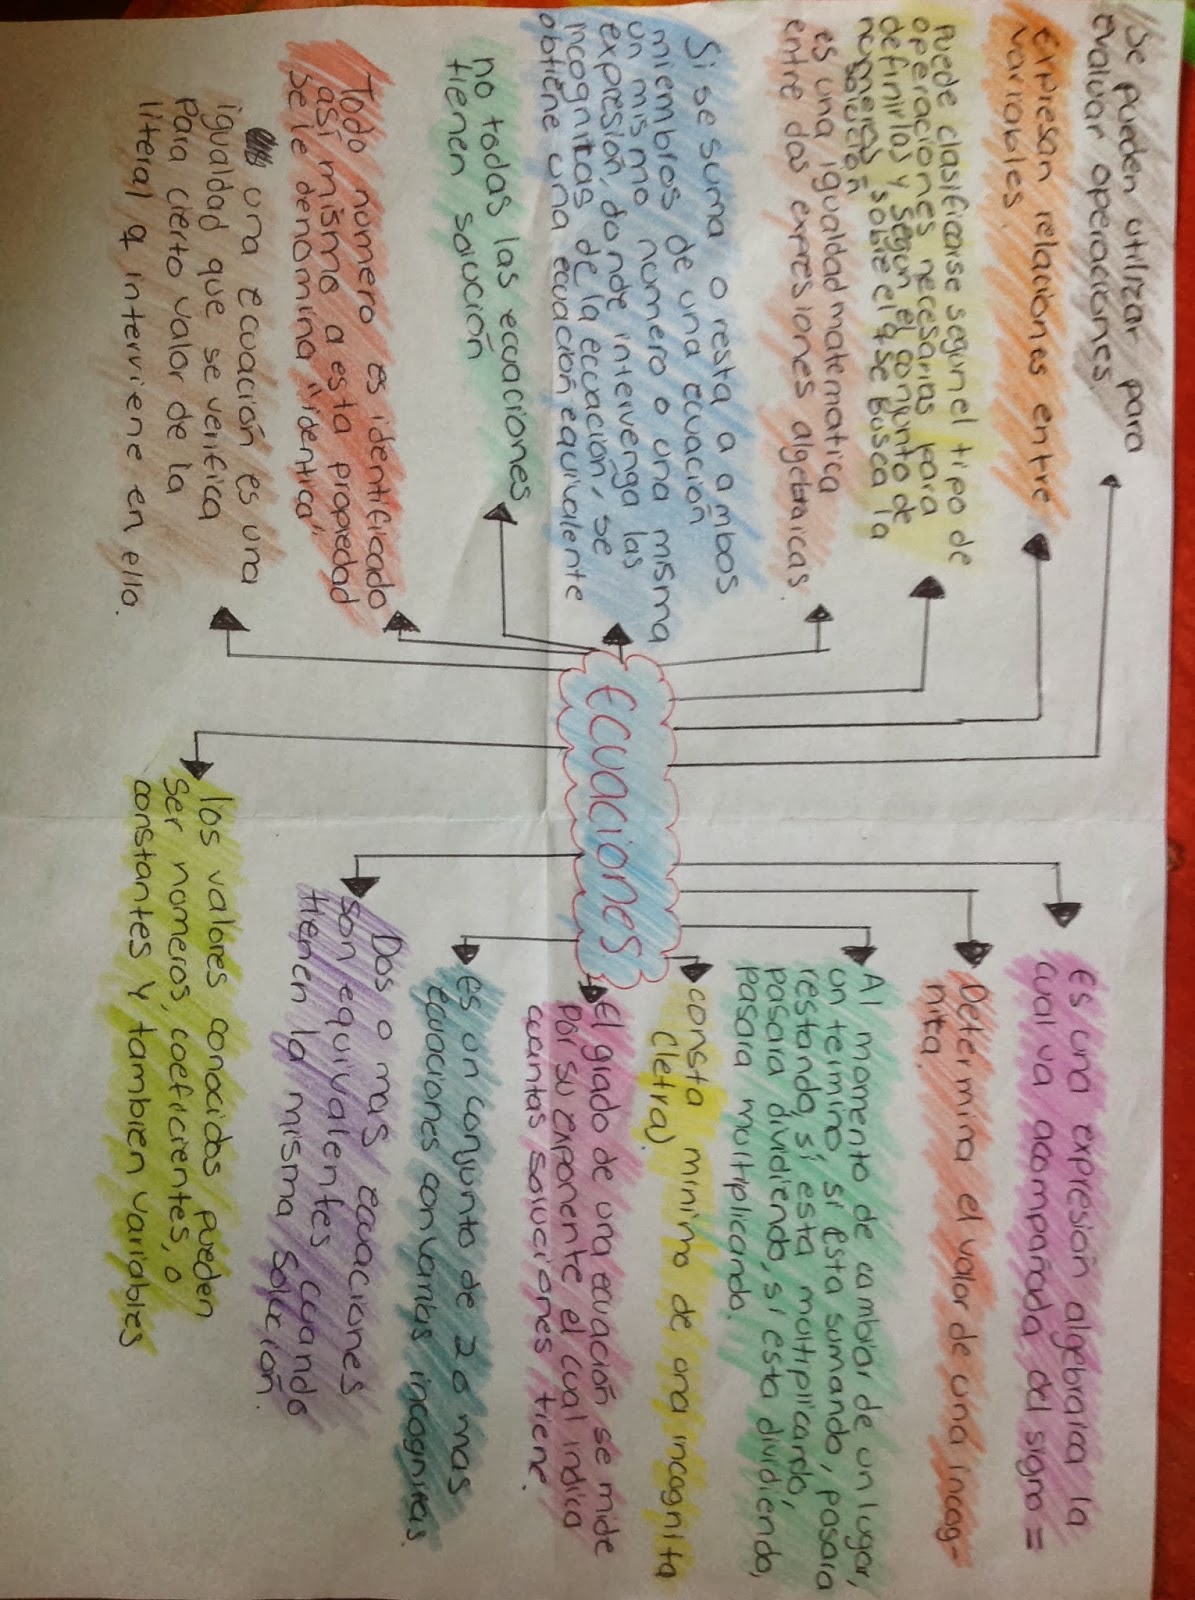 Se pueden utilizar para
evaluar operaciones
Expresan relaciones entre
variables.
Puede clasificarse segun el tipo de
operaciones necesarias para
definirlos y segun el conjunto de
numeros sobre el q se busca la
solución
es una igualdad matematica
entre dos expresiones algebraicas.
Si se suma o resta a ambos
miembros de una ecuación
un mismo numero o una misma
expresión, donde intervenga las
incognitas de la ecuación, se
obtiene una ecuación equivalente
no todas las ecuaciones
tienen solución
Todo numero es identificado
así mismo a esta propiedad
se le denomina "identica".
una ecuación es una
igualdad que se verifica
para cierto valor de la
literal q interviene en ello.
Ecuaciones
Es una expresión algebraica la
cual va acompañada del signo =
Determina el valor de una incog-
nita.
Al momento de cambiar de un lugar,
un termino si esta sumando, pasara
restando, si esta multiplicando,
pasara dividiendo, si esta dividiendo,
pasara multiplicando.
consta minimo de una incognita
(letra)
El grado de una ecuación se mide
por su exponente el cual indica
cuantas soluciones tiene.
Es un conjunto de 2 o mas
ecuaciones con varias incognitas.
Dos o mas ecuaciones
son equivalentes cuando
tienen la misma solución.
los valores conocidos pueden
ser numeros, coeficientes, o
constantes y tambien variables